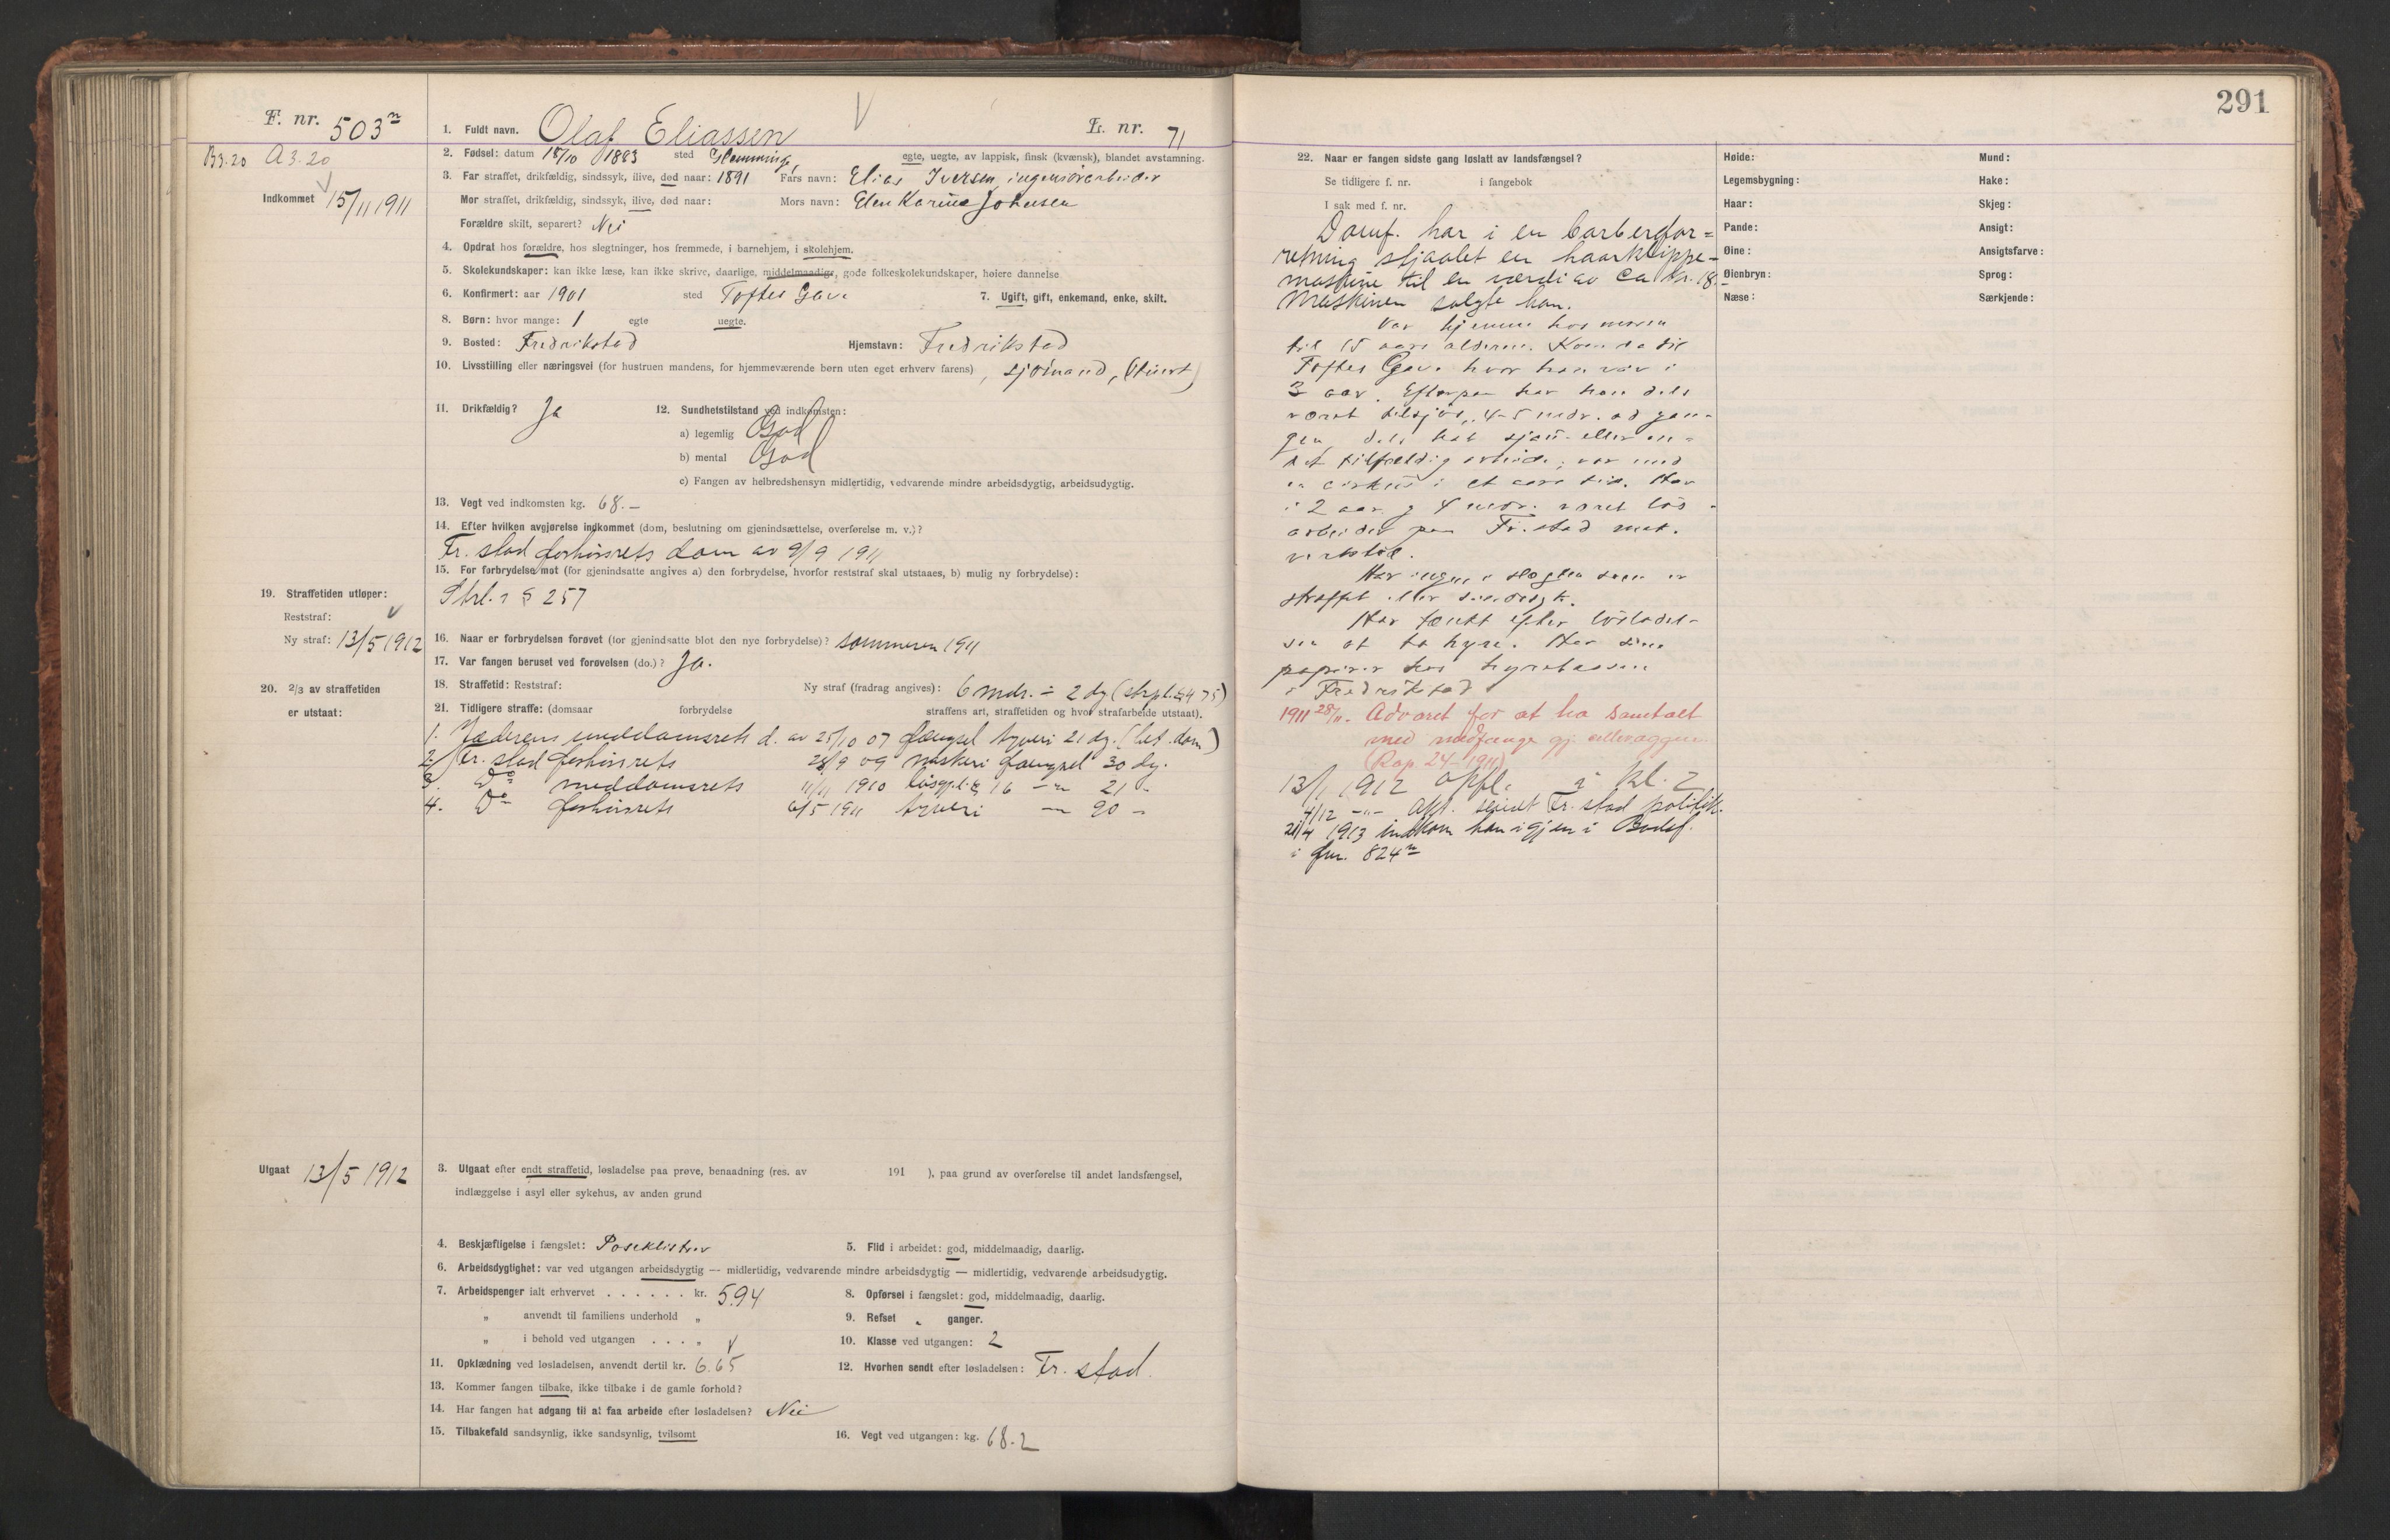 291
F. nr. 503ⁿ
B3.20 A3.20
Indkommet 15/11 1911
1. Fuldt navn. Olaf Eliassen L. nr. 71
2. Fødsel: datum 18/10 1883 sted Glemminge, egte, uegte, av lappisk, finsk (kvænsk), blandet avstamning.
3. Far straffet, drikfældig, sindssyk, ilive, død naar: 1891 Fars navn: Elias Iversen, ingeniørarbeider
Mor straffet, drikfældig, sindssyk, ilive, død naar: Mors navn: Elen Karine Johnsen
Forældre skilt, separert? Nei
4. Opdrat hos forældre, hos slegtninger, hos fremmede, i barnehjem, i skolehjem.
5. Skolekundskaper: kan ikke læse, kan ikke skrive, daarlige, middelmaadige, gode folkeskolekundskaper, høiere dannelse
6. Konfirmert: aar 1901 sted Toftes Gave 7. Ugift, gift, enkemand, enke, skilt.
8. Børn: hvor mange: 1 egte uegte.
9. Bosted: Fredrikstad Hjemstavn: Fredrikstad
10. Livsstilling eller næringsvei (for hustruen mandens, for hjemmeværende børn uten eget erhverv farens), sjømand, (stuert)
11. Drikfældig? Ja 12. Sundhetstilstand ved indkomsten:
a) legemlig God
b) mental God
c) Fangen av helbredshensyn midlertidig, vedvarende mindre arbeidsdygtig, arbeidsudygtig.
13. Vegt ved indkomsten kg. 68.—
14. Efter hvilken avgjørelse indkommet (dom, beslutning om gjenindsættelse, overførelse m. v.)?
Fr. stad forhørsrets dom av 9/9 1911
15. For forbrydelse mot (for gjenindsatte angives a) den forbrydelse, hvorfor reststraf skal utstaaes, b) mulig ny forbrydelse):
Strl. § 257
19. Straffetiden utløper:
Reststraf:
Ny straf: 13/5 1912
16. Naar er forbrydelsen forøvet (for gjenindsatte blot den nye forbrydelse)? sommeren 1911
17. Var fangen beruset ved forøvelsen (do.)? Ja.
20. 2/3 av straffetiden
er utstaat:
18. Straffetid: Reststraf: Ny straf (fradrag angives): 6 mdr. ÷ 2 dg (strpl. § 475)
21. Tidligere straffe: (domsaar forbrydelse straffens art, straffetiden og hvor strafarbeide utstaat).
1. Jæderens meddomsrets d. av 25/10 07 fængsel tyveri 21 dg. (bet. dom)
2. Fr. stad forhørsrets 28/9 09 naskeri fængsel 30 dg.
3. Dº meddomsrets 11/11 1910 løsgj.l. § 16 —"— 21 -
4. Dº forhørsrets 6/5 1911 tyveri — 90 -
Utgaat 13/5 1912
3. Utgaat efter endt straffetid, løsladelse paa prøve, benaadning (res. av 191 ), paa grund av overførelse til andet landsfængsel,
indlæggelse i asyl eller sykehus, av anden grund
4. Beskjæftigelse i fængslet: Poseklistrer 5. Flid i arbeidet: god, middelmaadig, daarlig.
6. Arbeidsdygtighet: var ved utgangen arbeidsdygtig — midlertidig, vedvarende mindre arbeidsdygtig — midlertidig, vedvarende arbeidsudygtig.
7. Arbeidspenger ialt erhvervet . . . . . . kr. 5.94 8. Opførsel i fængslet: god, middelmaadig, daarlig.
„ anvendt til familiens underhold „ 9. Refset „ ganger.
„ i behold ved utgangen . . . „ 10. Klasse ved utgangen: 2
11. Opklædning ved løsladelsen, anvendt dertil kr. 6.65 12. Hvorhen sendt efter løsladelsen: Fr. stad.
13. Kommer fangen tilbake, ikke tilbake i de gamle forhold?
14. Har fangen hat adgang til at faa arbeide efter løsladelsen? Nei
15. Tilbakefald sandsynlig, ikke sandsynlig, tvilsomt 16. Vegt ved utgangen: kg. 68.2
22. Naar er fangen sidste gang løslatt av landsfængsel?
Se tidligere f. nr. i fangebok
I sak med f. nr.
Domf. har i en barberfor=
retning stjaalet en haarklippe-
maskine til en værdi av ca kr. 18.-
Maskinen solgte han.
Var hjemme hos moren
til 15 aars alderen. Kom da til
Toftes Gave hvor han var i
3 aar. Efterpaa har han dels
været tilsjøs, 4-5 mdr. ad gan-
gen, dels hat sjau- eller an-
det tilfældig arbeide; var med
en cirkus i et aars tid. Har
i 2 aar og 4 mdr. været løs-
arbeider paa Fr.stad mek.
verksted.
Har ingen i slegten som er
straffet eller sindssyk.
Har tænkt efter løsladel-
sen at ta hyre. Har sine
papirer hos hyrebassen
i Fredrikstad
1911 28/11. Advaret for at ha samtalt
med medfange gj. cellevæggen
(Rap. 24-1911)
13/1 1912 opfl. i kl. 2
4/12 -"- sendt Fr. stad politik.
21/4 1913 indkom han igjen i Bodsf.
i fnr. 824ⁿ
Høide: Mund:
Legemsbygning: Hake:
Haar: Skjeg:
Pande: Ansigt:
Øine: Ansigtsfarve:
Øienbryn: Sprog:
Næse: Særkjende: